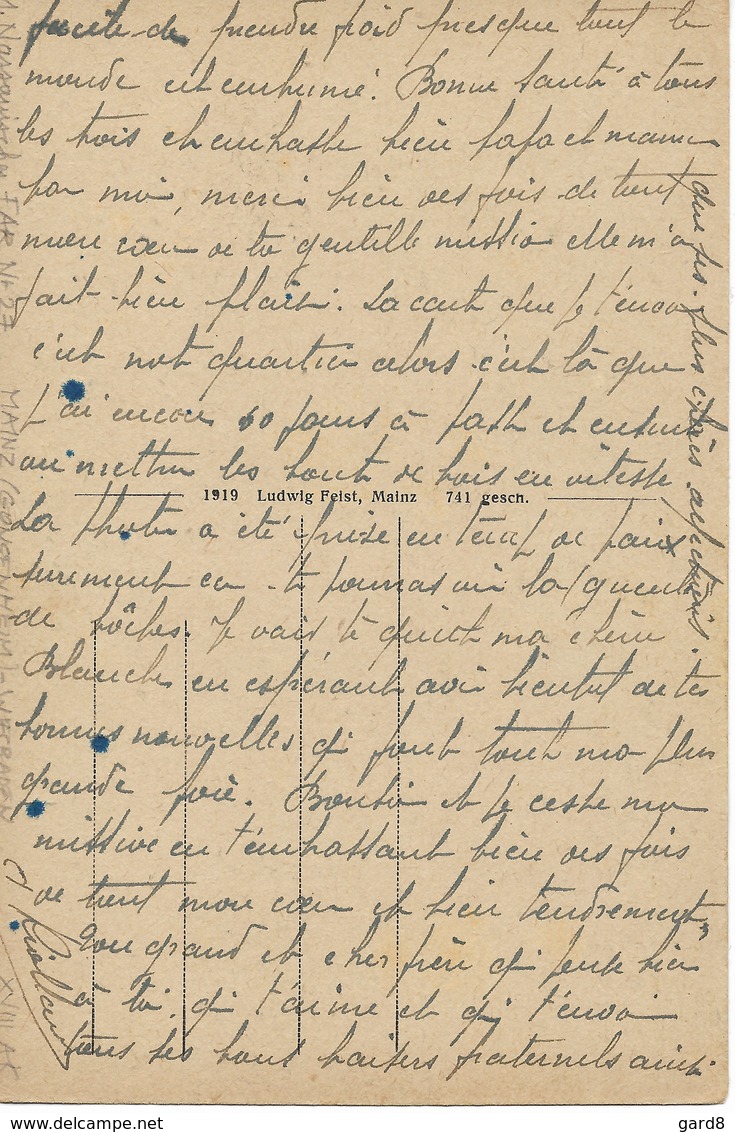 facile de prendre froid presque tout le
monde est enrhumé. Bonne santé à tous
les trois et embrasse bien papa et maman
pour moi, merci bien des fois de tout
mon cœur de ta gentille missive elle m'a
fait bien plaisir. La carte que je t'envoie
c'est not quartier alors c'est là que
j'ai encore 60 jours à passer et ensuite
au mettre les bouts de bois en vitesse
1919 Ludwig Feist, Mainz 741 gesch.
La photo a été prise en temps de paix
surement car tu pourras voir la gueule
de bôches. Je vais te quitter ma chère
Blanche en espérant avoir bientôt de tes
bonnes nouvelles qui font tout ma plus
grande joie. Bonsoir et je cesse ma
missive en t'embrassant bien des fois
de tout mon cœur et bien tendrement
Ton grand et cher frère qui pense bien
à toi, qui t'aime et qui t'envoie
tous ses bons baisers fraternels ainsi
que ses plus chères affections
FAR Nr 27 MAINZ (GONSENHEIM)
XVIII AK
gard8